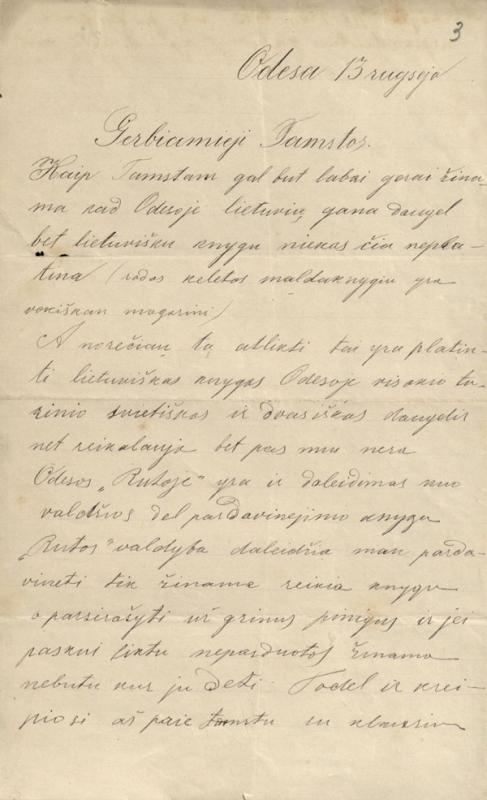 3
Odesa 13 rugsėjo
Gerbiamieji Tamstos.
Kaip Tamstam gal but labai gerai žino-
ma kad Odesoje lietuvių gana daugel
bet lietuvišku knygu niekas čia nepla-
tina (rodos keletos maldaknygiu yra
vokiškan magazini)
A norėčiau tą atlikti tai yra platin-
ti lietuviškas knygas Odesoje visokio tu-
rinio svietiškas ir dvasiškas daugelis
net reikalauja bet pas mus nera
Odesos „Rutoje" yra ir daleidimas nuo
valdžios del pardavinejimo knygu
„Rutos" valdyba daleidžia man parda-
vineti tik žinoma reikia knygu
o parsirašyti už grinus pinigus ir jei
paskui liktu neparduotos žinoma
nebutu kur ju deti. Todel ir krei-
piosi aš paie tamstu su klausim